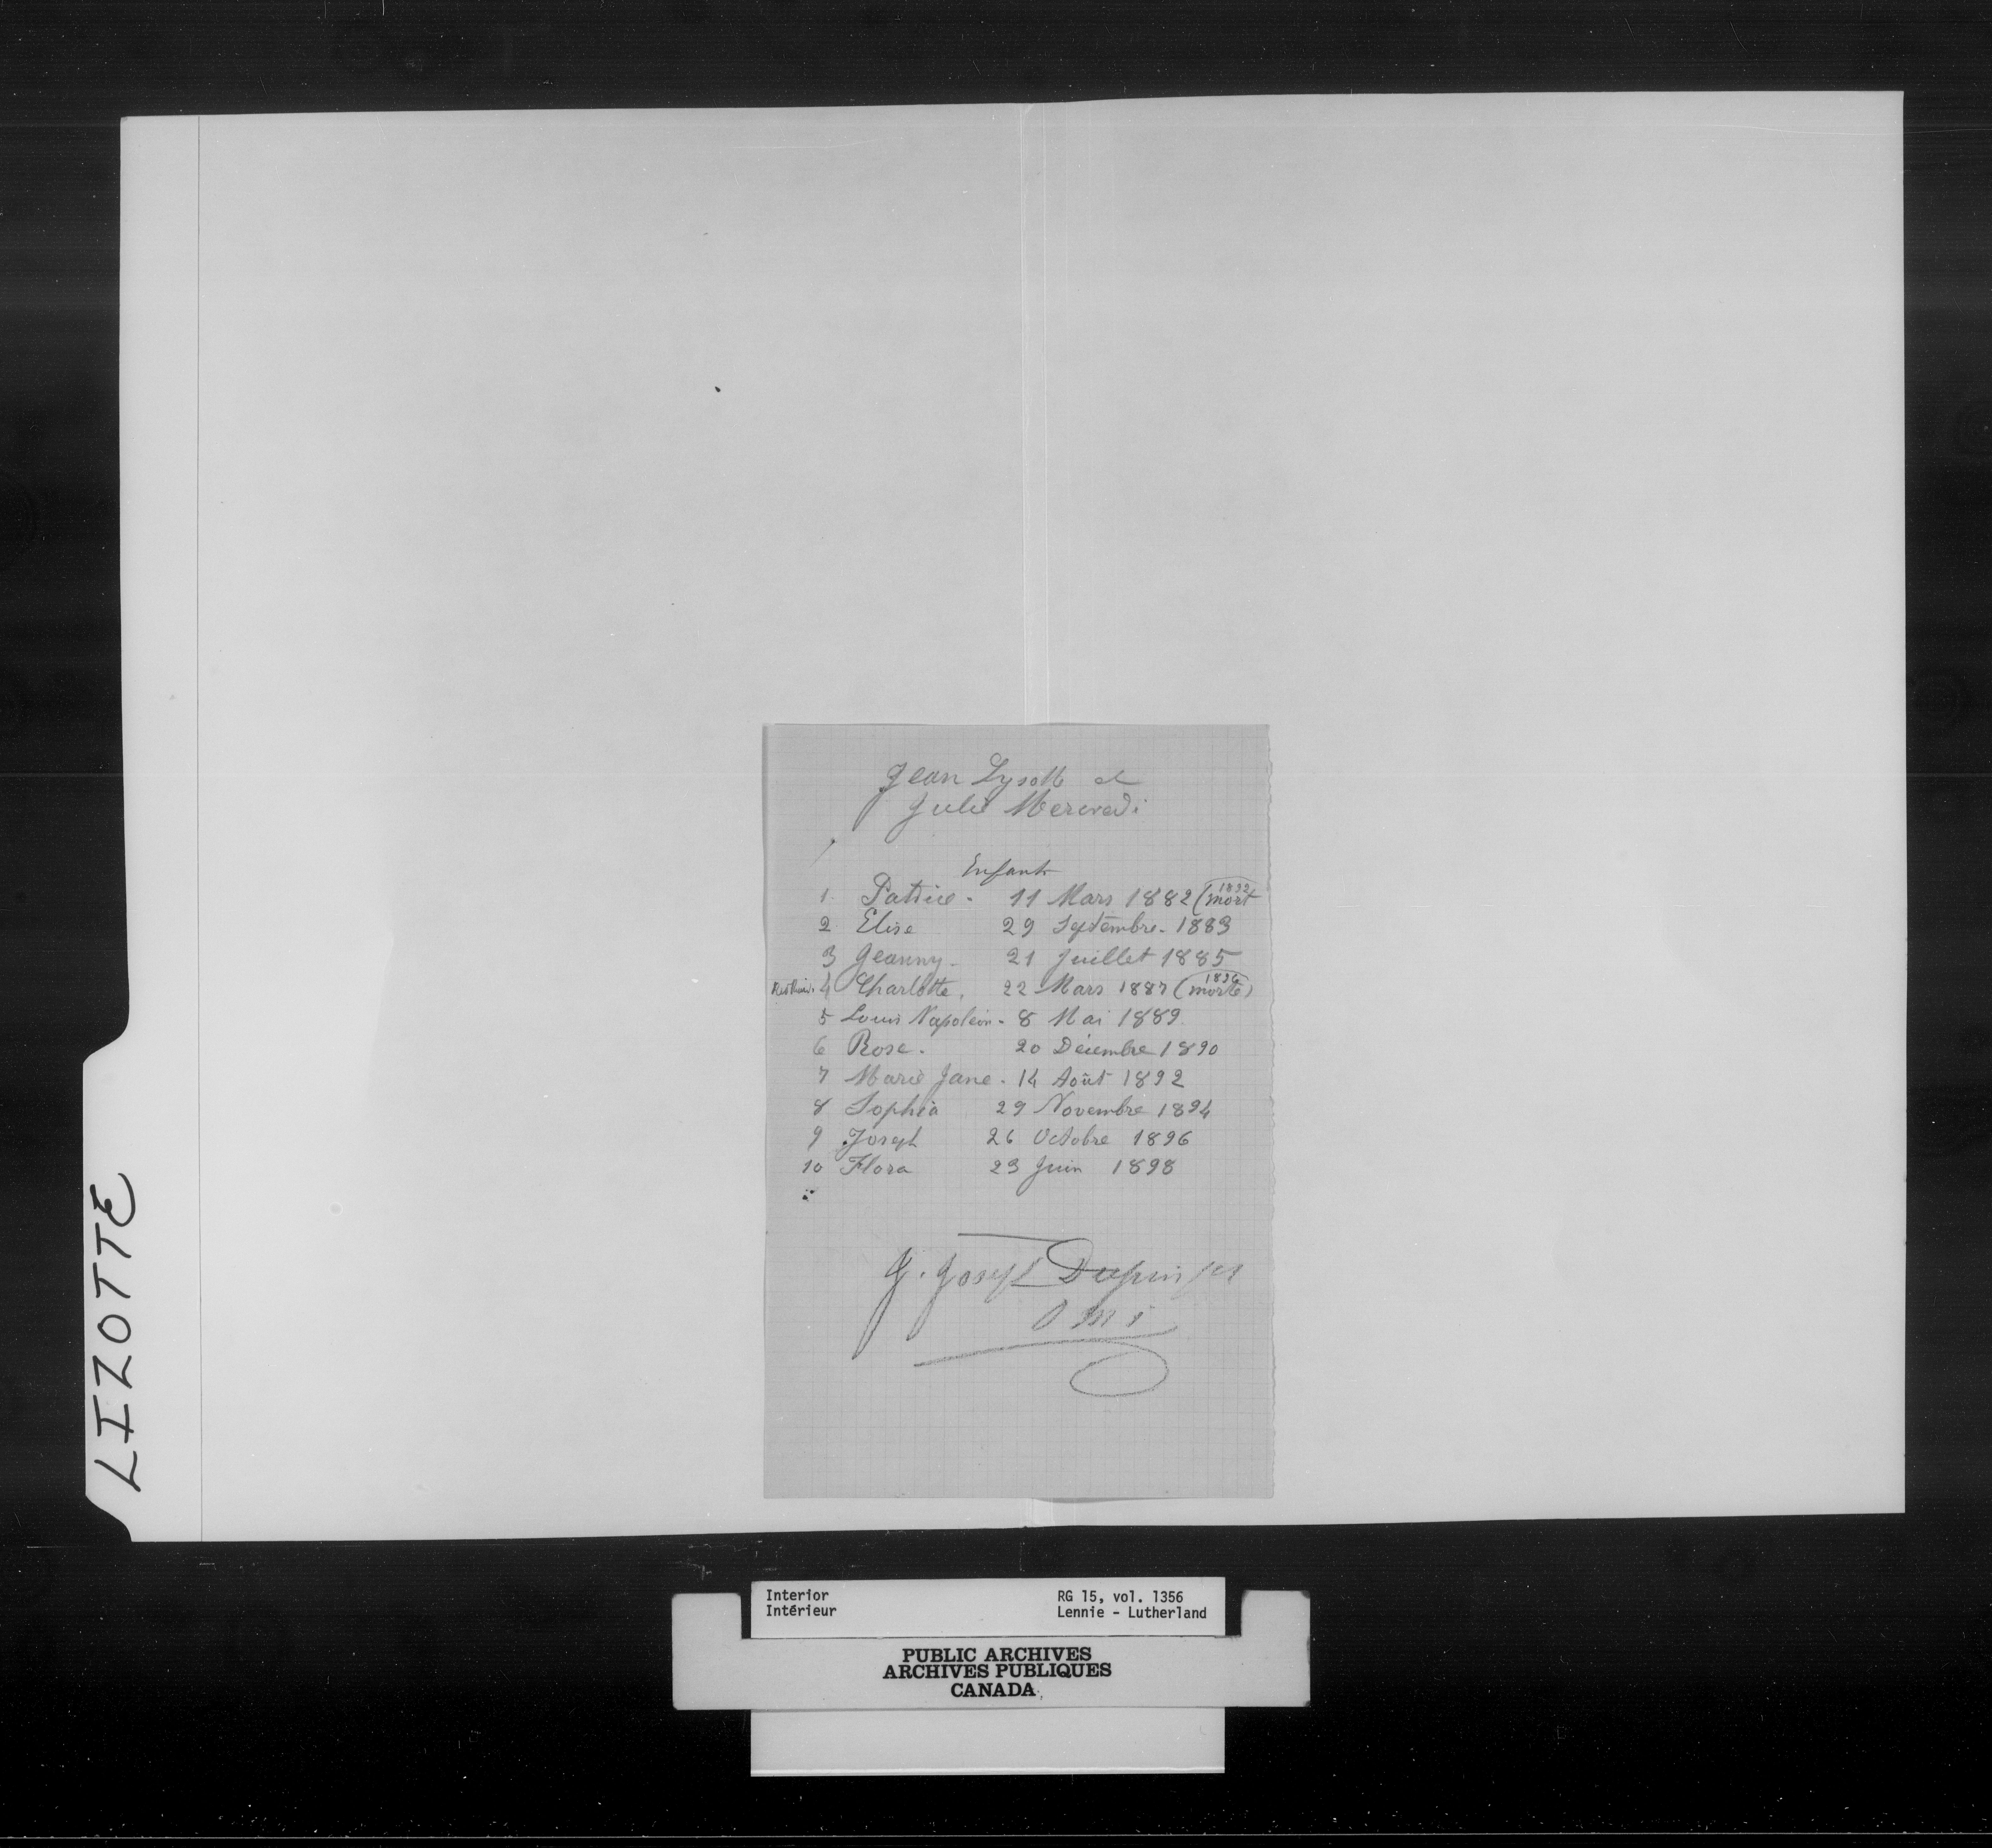 Jean Lysott et
Julie Mercredi
Enfants
1. Patrice - 11 Mars 1882 (1892 mort
2 Elise 29 Septembre - 1883
3 Jeanny - 21 Juillet 1885
4 Charlotte, 22 Mars 1887 (1896 morte)
5 Louis Napoléon - 8 Mai 1889
6 Rose. 20 Décembre 1890
7 Marie Jane - 14 Août 1892
8 Sophia 29 Novembre 1894
9 Joseph 26 Octobre 1896
10 Flora 23 Juin 1898
G. Joseph Dupin
O M I
LIZOTTE
Interior RG 15, vol. 1356
Intérieur Lennie - Lutherland
PUBLIC ARCHIVES
ARCHIVES PUBLIQUES
CANADA